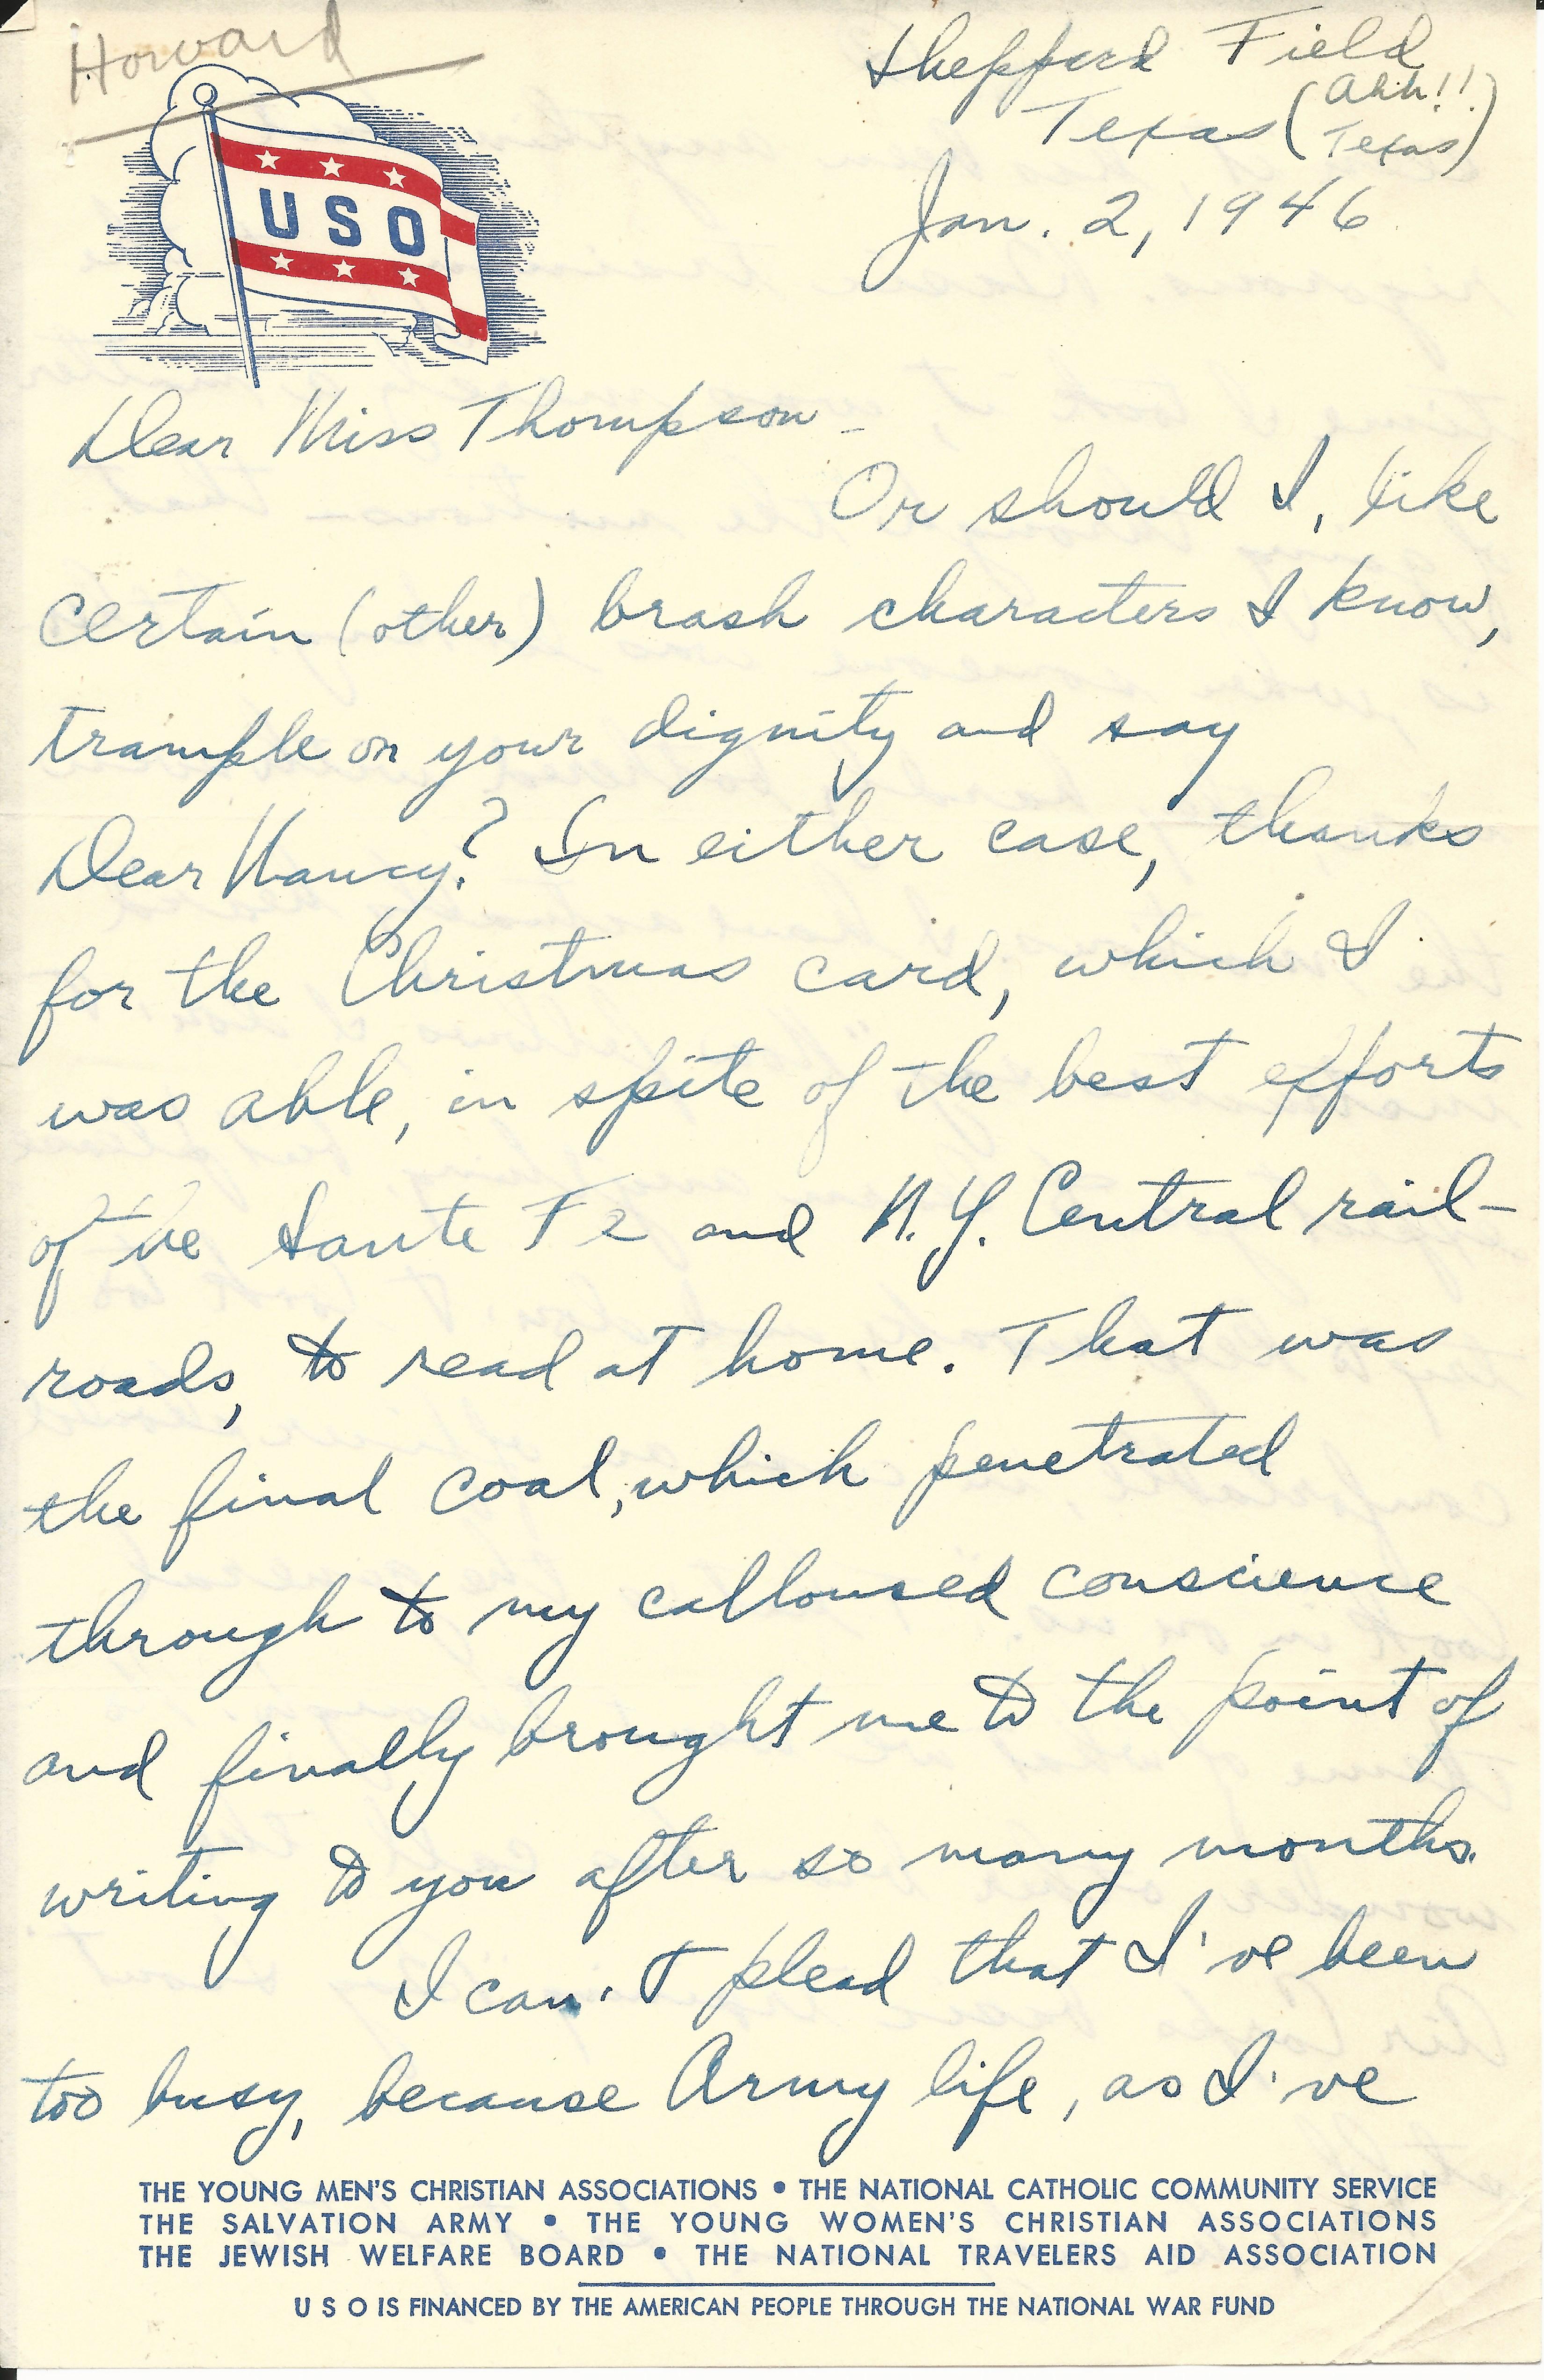 Howard
Sheppard Field
Texas (Ahh!! Texas)
Jan. 2, 1946
USO
Dear Miss Thompson -
Or should I, like
certain (other) brash characters I know,
trample on your dignity and say
Dear Nancy? In either case, thanks
for the Christmas card, which I
was able, in spite of the best efforts
of the Sante Fe and N.Y. Central rail-
roads, to read at home. That was
the final coal, which penetrated
through to my calloused conscience
and finally brought me to the point of
writing to you after so many months.
I can't plead that I've been
too busy, because Army life, as I've
THE YOUNG MEN'S CHRISTIAN ASSOCIATIONS • THE NATIONAL CATHOLIC COMMUNITY SERVICE
THE SALVATION ARMY • THE YOUNG WOMEN'S CHRISTIAN ASSOCIATIONS
THE JEWISH WELFARE BOARD • THE NATIONAL TRAVELERS AID ASSOCIATION
U S O IS FINANCED BY THE AMERICAN PEOPLE THROUGH THE NATIONAL WAR FUND